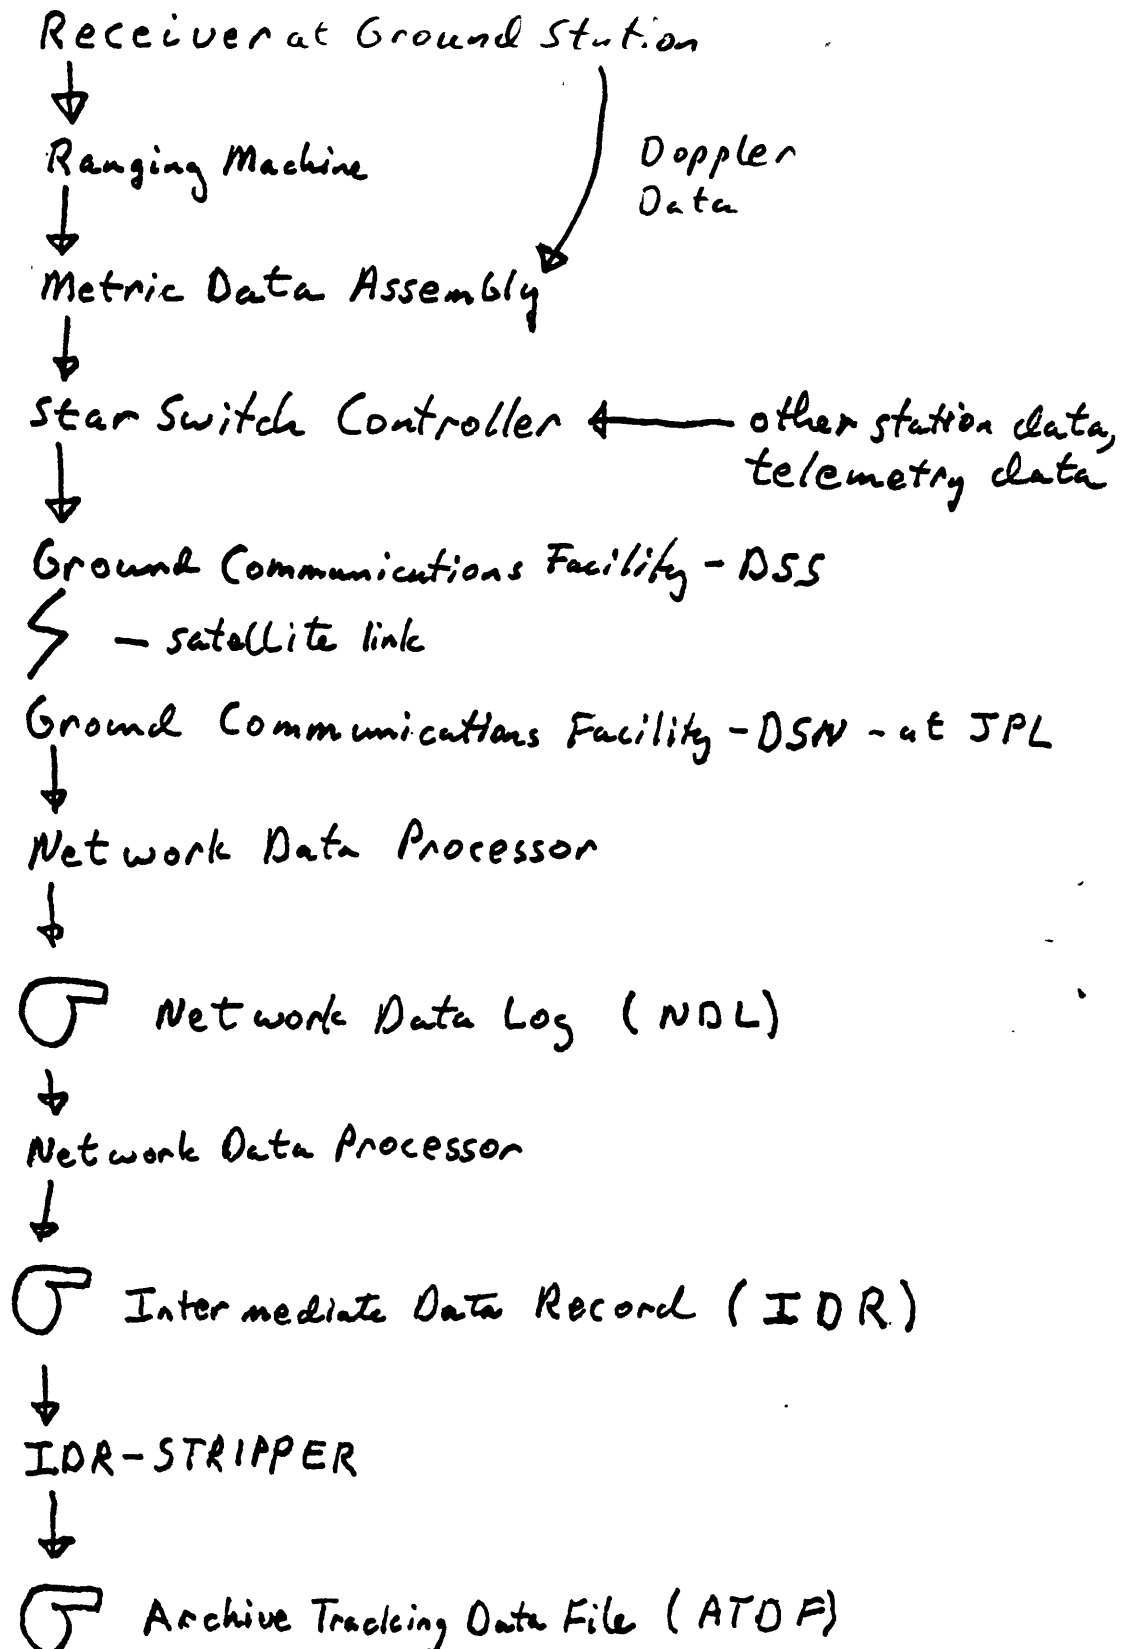 Receiver at Ground Station
Ranging Machine
Doppler
Data
Metric Data Assembly
Star Switch Controller
other station data,
telemetry data
Ground Communications Facility - DSS
- satellite link
Ground Communications Facility - DSN - at JPL
Network Data Processor
Network Data Log (NDL)
Network Data Processor
Intermediate Data Record (IDR)
IDR-STRIPPER
Archive Tracking Data File (ATDF)